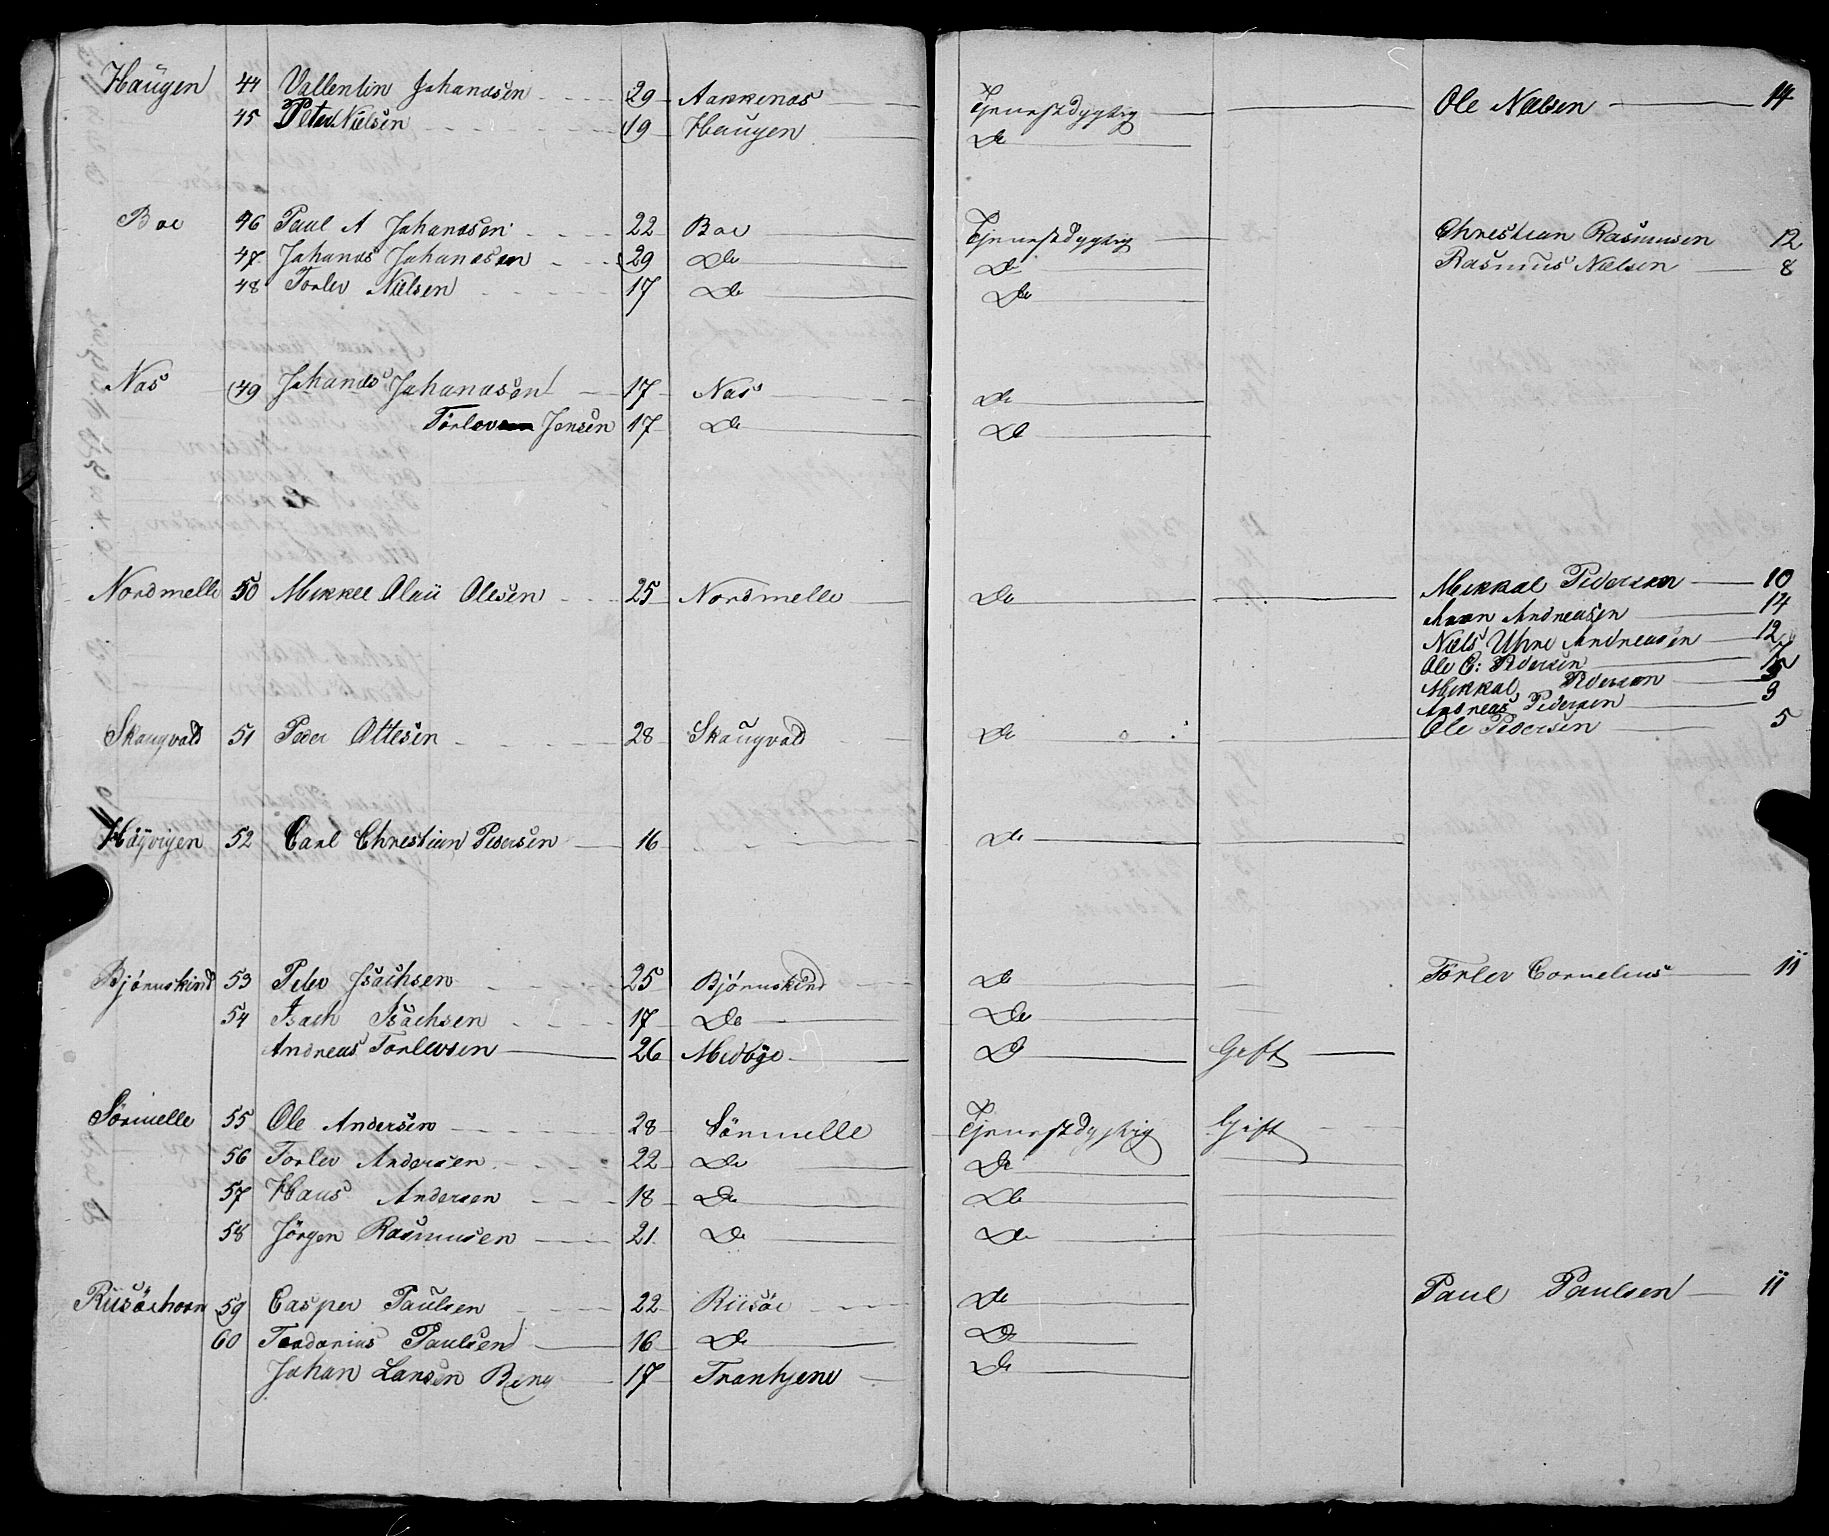 Haugen 44 Vallentin Johannsen 29 Aakkenæs Tjenestdygtig Ole Nielsen 14
45 Peter Nielsen 19 Haugen Do
Boe 46 Paul A Johannsen 22 Boe Tjenestdygtig Christian Rasmusen 12
47 Johans Johannsen 29 Do Do Rasmus Nielsen 8
48 Torlev Nielsen 17 Do Do
Næs 49 Johans Johannsen 17 Næs Do
Torlev Jensen 17 Do Do
Nordmelle 50 Mekkel Olaii Olesen 25 Nordmelle Do Mekkal Pedersen 10
Andreasen 14
Niels Uhre Andreasen 12
Ole E: Pedersen 7
Mekkal Pedersen
Andreas Pedersen 3
Skaugvold 51 Peder Ottesen 28 Skaugvold Do Ole Pedersen 5
Høyvigen 52 Carl Christian Pedersen 16 " " Do
Bjørnskind 53 Peter Isachsen 25 Bjørnskind Do Torlev Cornelius 11
54 Isach Isachsen 17 Do Do
Andreas Torlevsen 26 Medbye Do Gift
Sörmelle 55 Ole Andersen 28 Sörmelle Tjenestdygtig Gift
56 Torlev Andersen 22 Do Do
57 Hans Andersen 18 Do Do
58 Jörgen Rasmusen 21 Do Do
Riisöehavn 59 Casper Paulsen 22 Riisöe Do Paul Paulsen 11
60 Tordarius Paulsen 16 Do Do
Johan Larsen Berg 17 Tranhjene Do